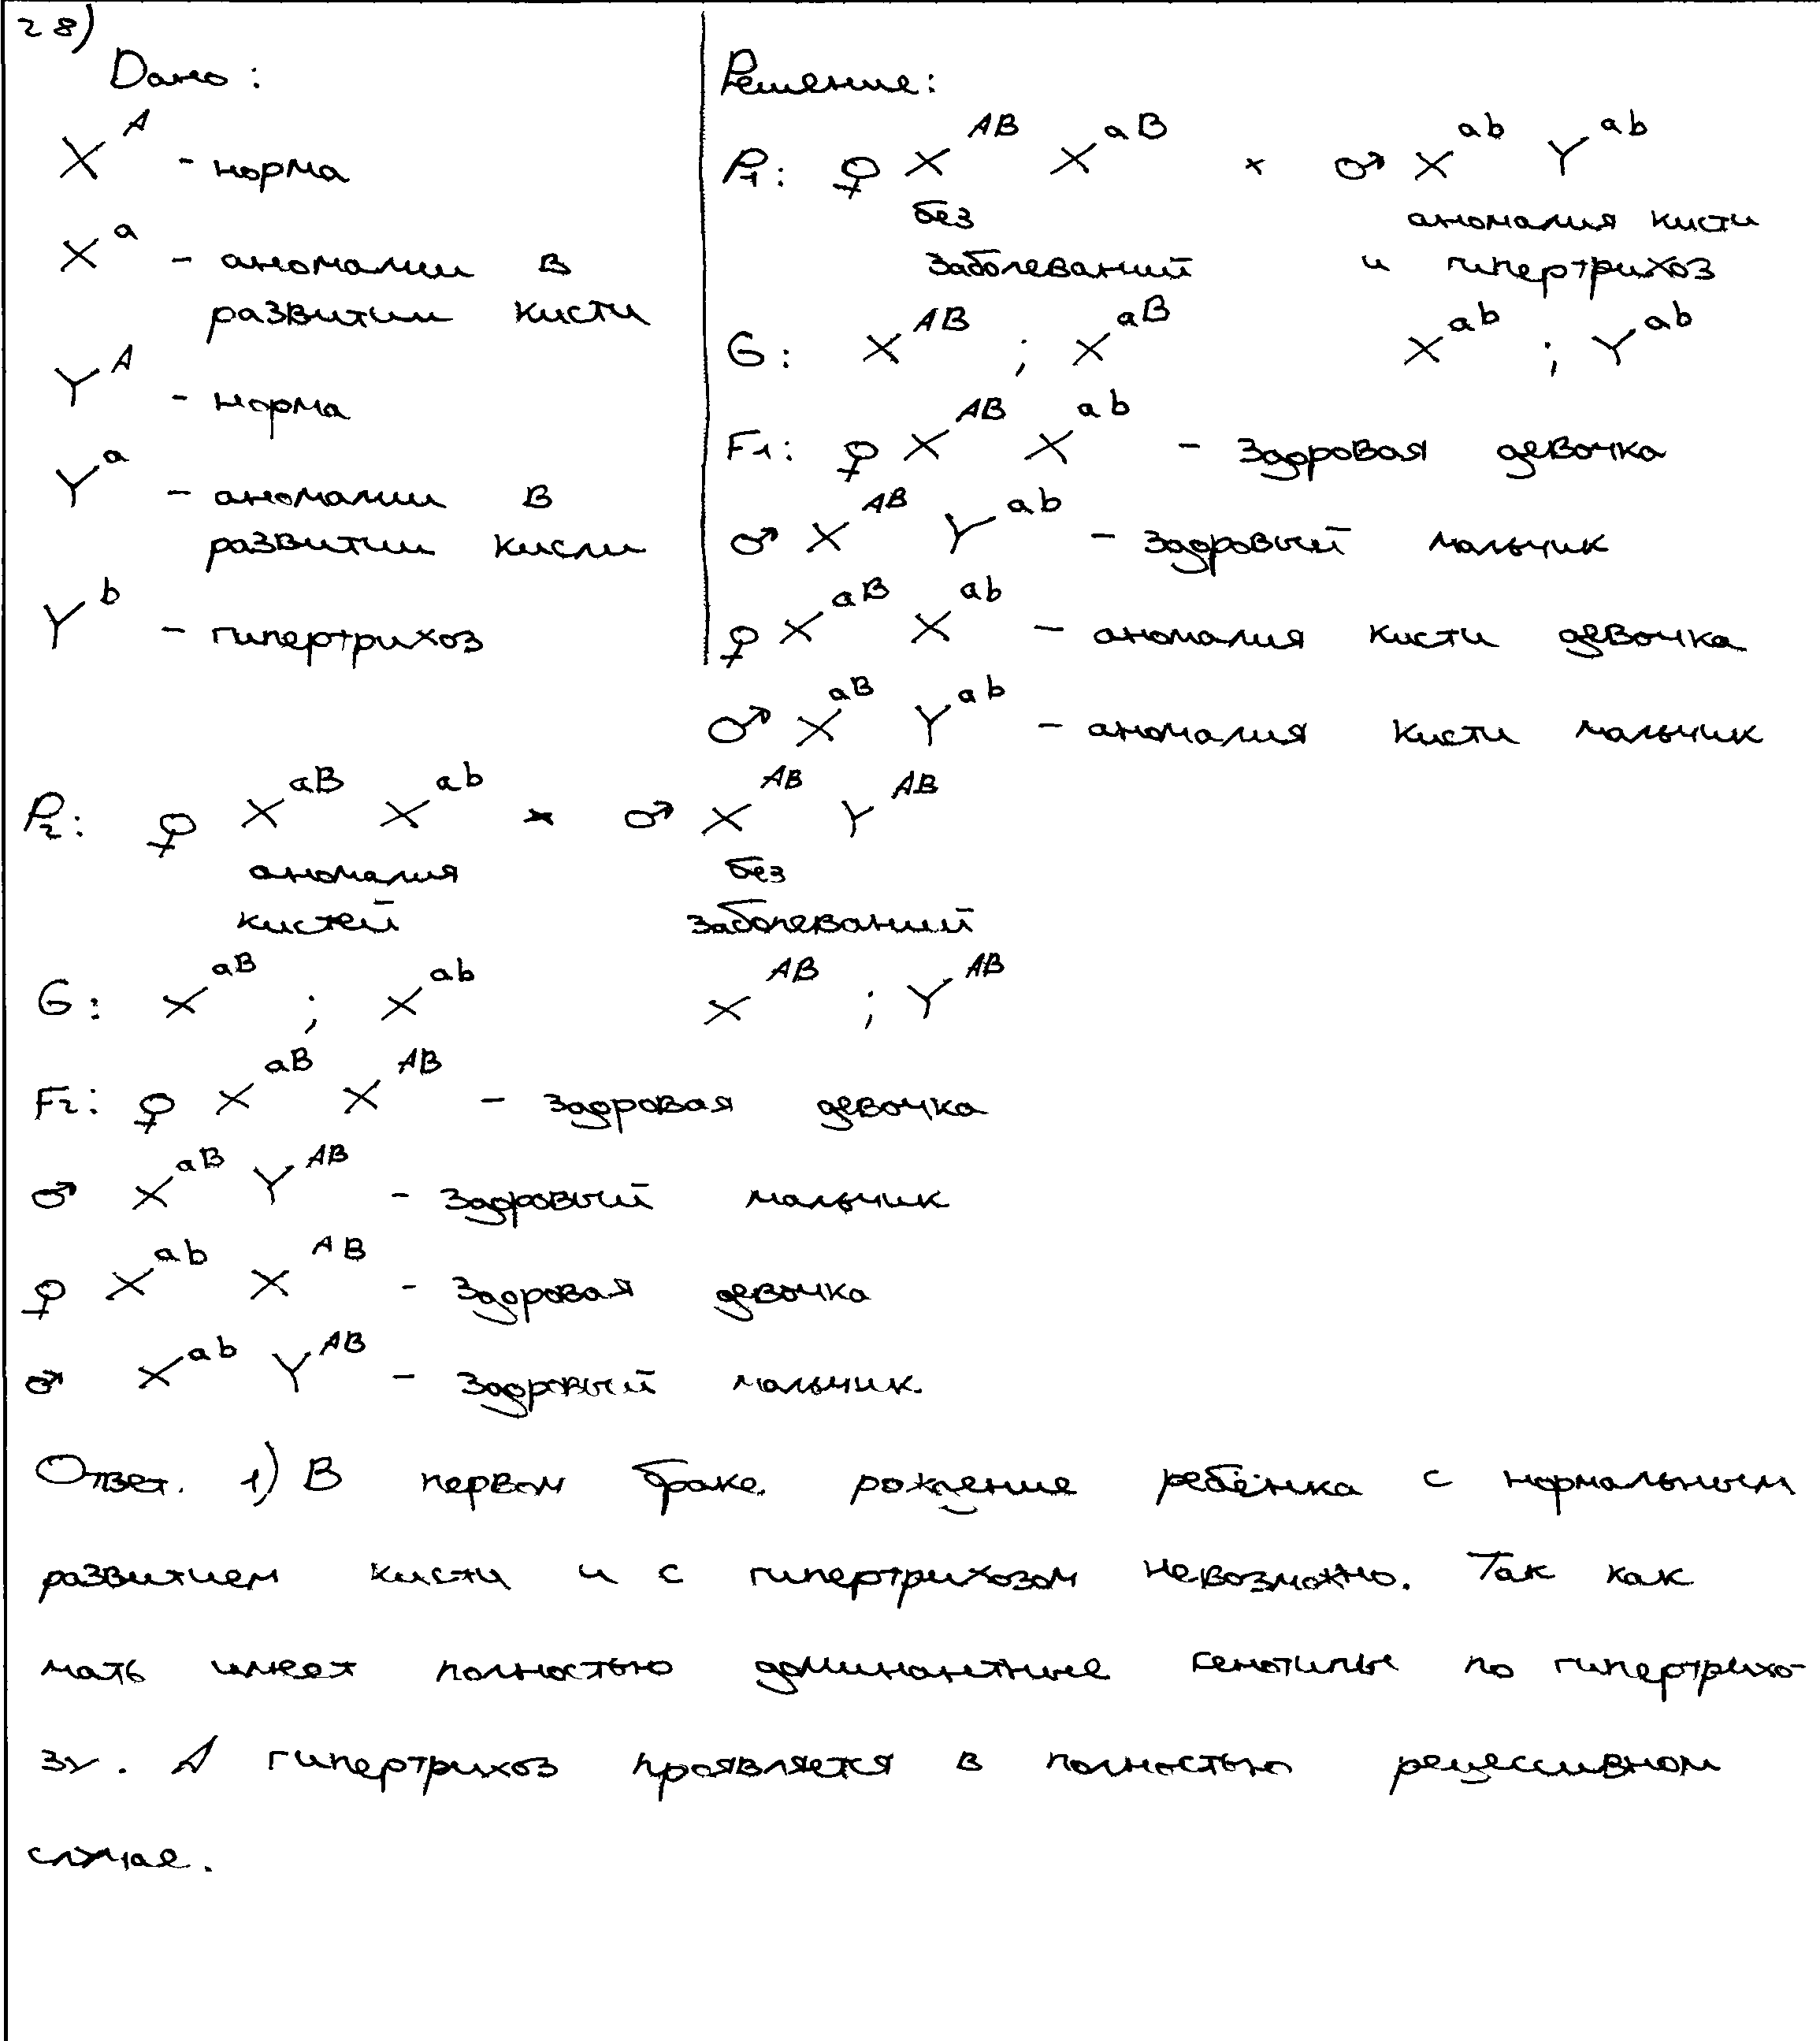 28)
Дано:
X^A - норма
X^a - аномалии в
развитии кисти
Y^A - норма
Y^a - аномалии в
развитии кисли
Y^b - гипертрихоз
Решение:
P1: ♀ X^AB X^aB × ♂ X^ab Y^ab
без аномалия кисти
заболеваний и гипертрихоз
G: X^AB ; X^aB X^ab ; Y^ab
F1: ♀ X^AB X^ab - здоровая девочка
♂ X^AB Y^ab - здоровый мальчик
♀ X^aB X^ab - аномалия кисти девочка
♂ X^aB Y^ab - аномалия кисти мальчик
P2: ♀ X^aB X^ab × ♂ X^AB Y^AB
аномалия без
кистей заболеваний
G: X^aB ; X^ab X^AB ; Y^AB
F2: ♀ X^aB X^AB - здоровая девочка
♂ X^aB Y^AB - здоровый мальчик
♀ X^ab X^AB - здоровая девочка
♂ X^ab Y^AB - здоровый мальчик.
Ответ. 1) В первом браке рождение ребёнка с нормальным
развитием кисти и с гипертрихозом невозможно. Так как
мать имеет полностью доминантные генотипы по гипертрихо-
зу. А гипертрихоз проявляется в полностью рецессивном
случае.